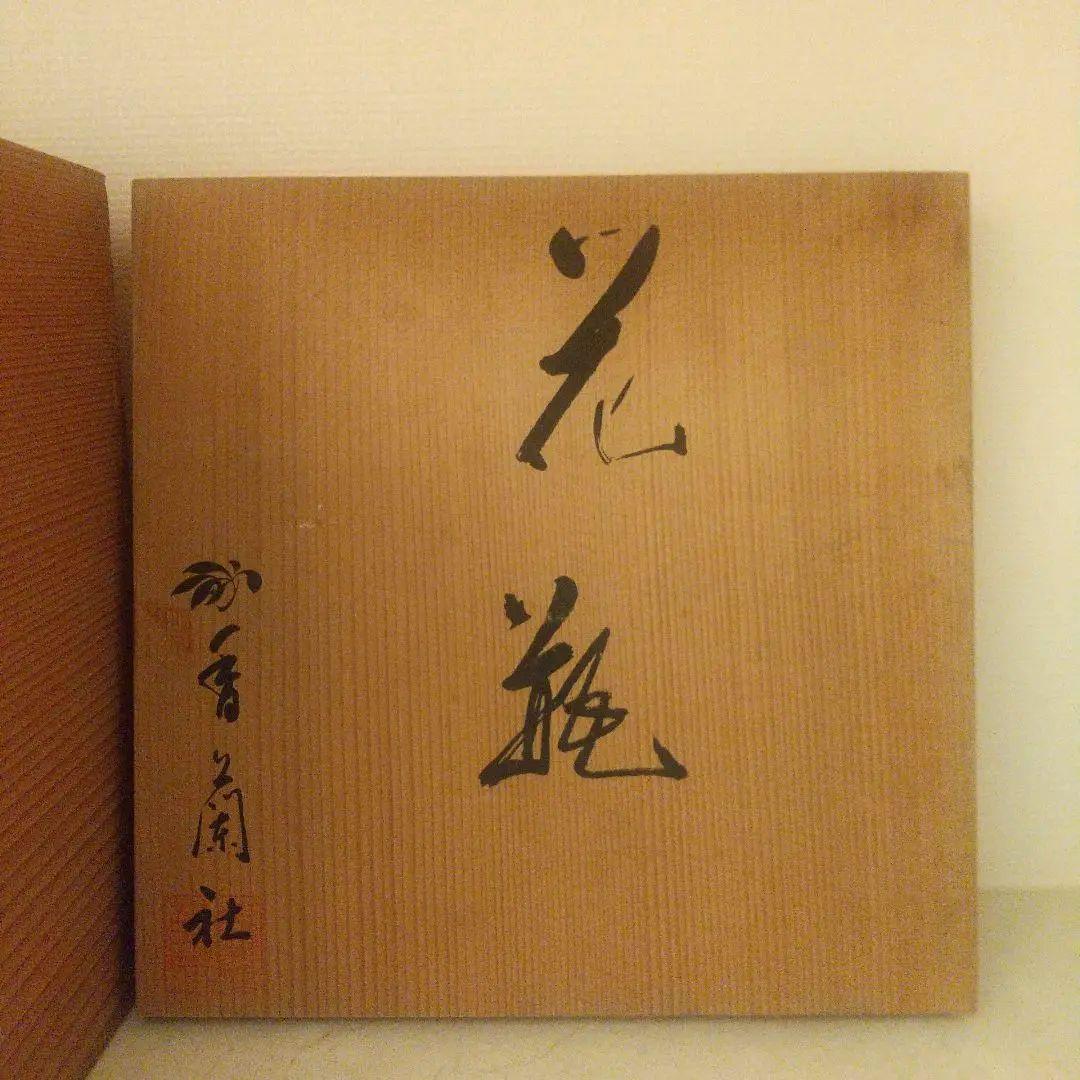 花瓶
香蘭社